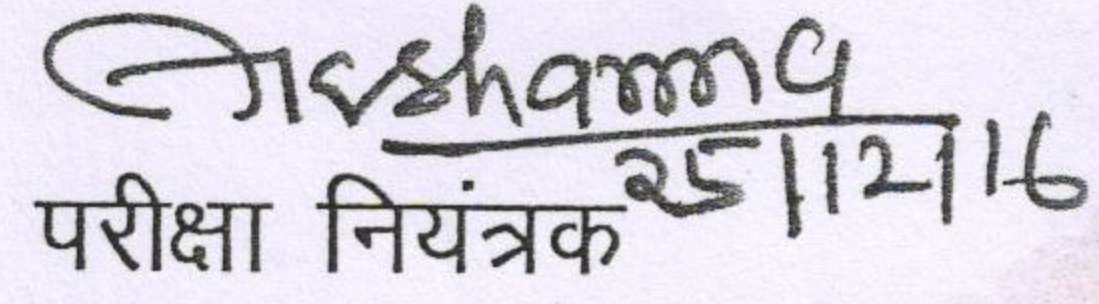 sharma
25/12/16
परीक्षा नियंत्रक